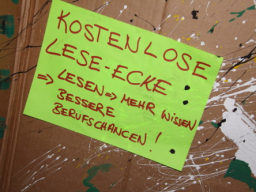 KOSTENLOSE
LESE-ECKE
⇒ LESEN ⇒ MEHR WISSEN
BESSERE
BERUFSCHANCEN!